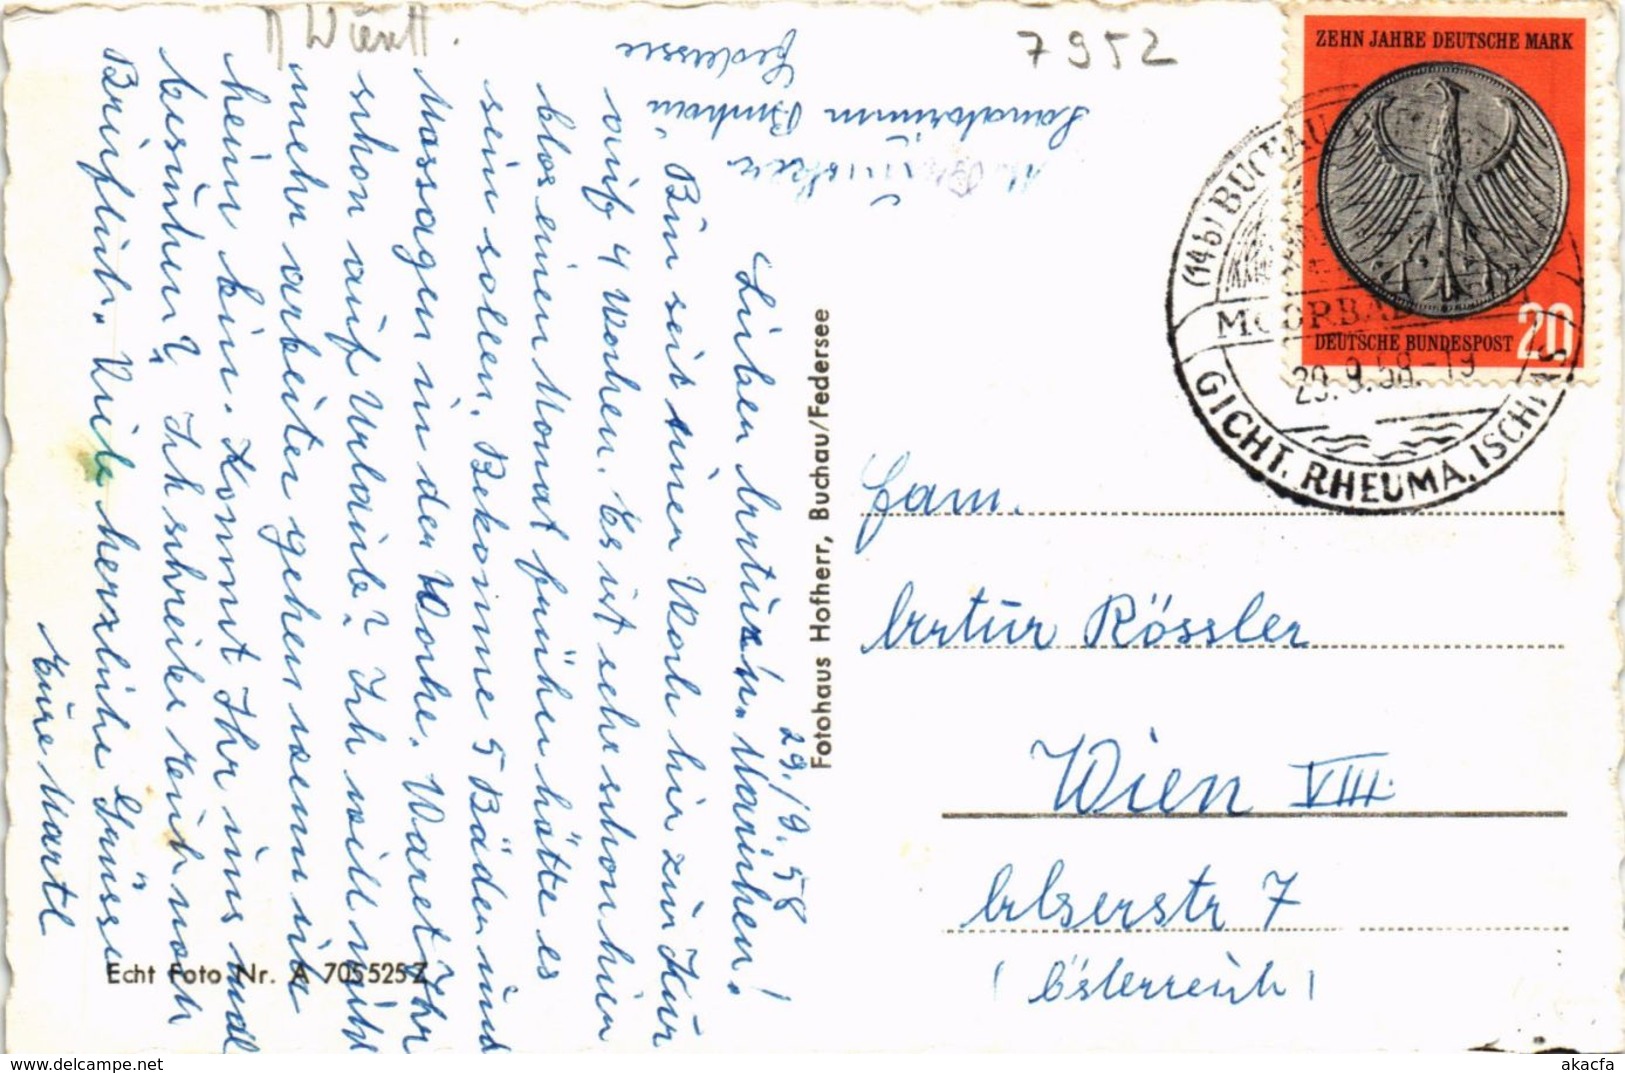 Württ.
7952
ZEHN JAHRE DEUTSCHE MARK
20
DEUTSCHE BUNDESPOST
(14b) BUCHAU
MOORBAD
29.9.58.-19
GICHT. RHEUMA. ISCHIAS
Sanatorium
Federsee
29./9.58
Lieber Artur, Mariechen!
Bin seit einer Woch hir zur Kur
auf 4 Wochen. Es ist sehr schon hier
blos einen Monat früher hätte es
sein sollen. Bekomme 5 Bäder und
Massagen in der Woche. Waret Ihr
schon auf Urlaub? Ich will nicht
mehr arbeiten gehen wenn ich
heim bin. Kommt Ihr uns mal
besuchen? Ich schreibe Euch noch
Brieflich. Viele herzliche Grüsse
Eure Martl
Fotohaus Hofherr, Buchau/Federsee
Echt Foto Nr. A 705525Z
Fam.
Artur Rössler
Wien VIII.
Albserstr 7
(Österreich)
akacfa